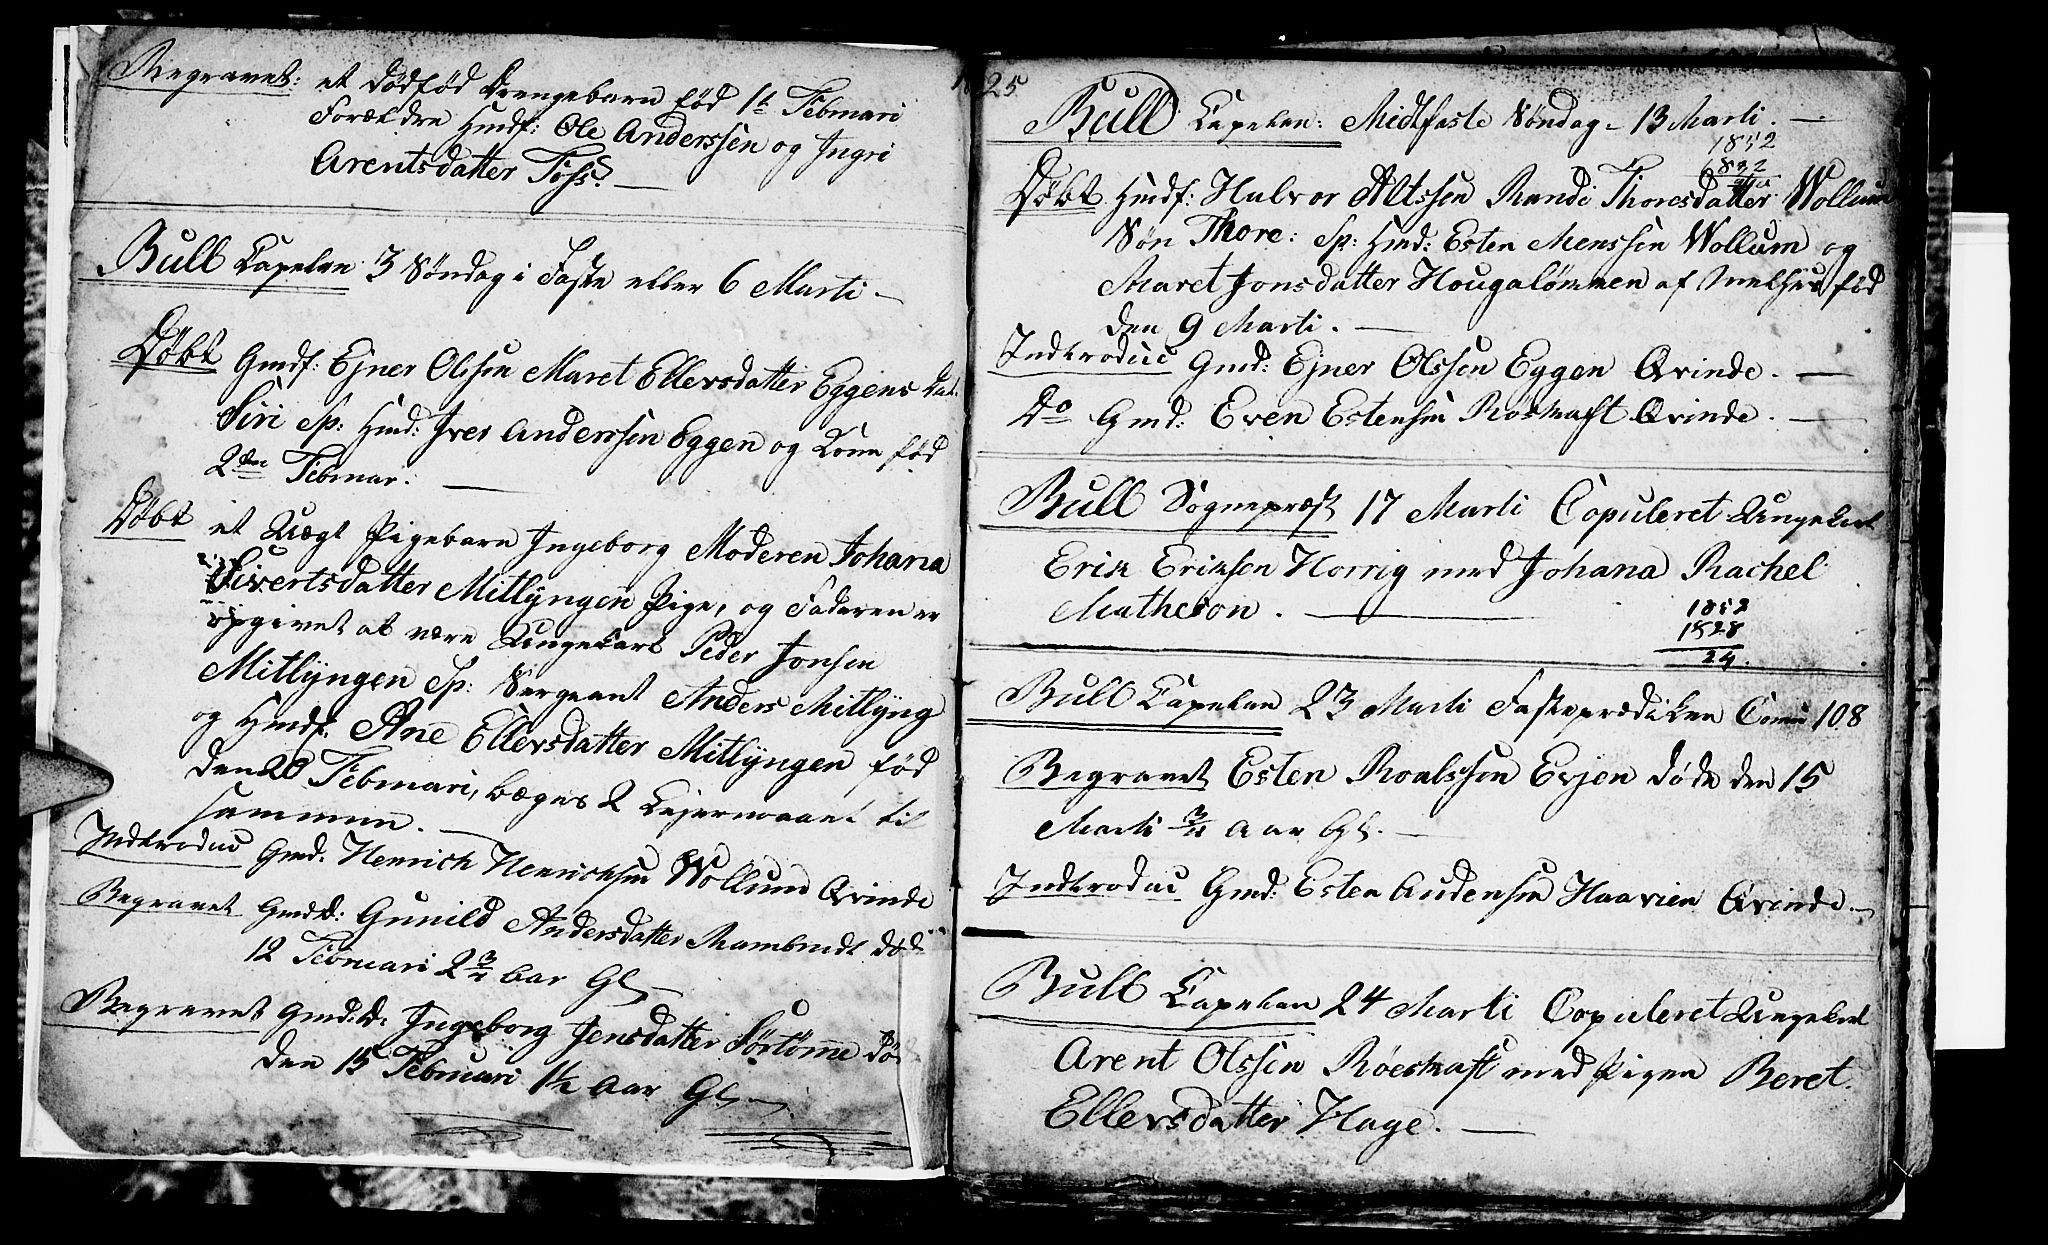 Begravet: et dødfød Drengebarn fød 1te Febmari
Forældre Hmdf: Ole Anderssen og Ingri
Arentsdatter Foss.
Bull Capelan 3 Søndag i Faste eller 6 Marti
Døbt Gmdf: Ejner Olssen Maret Ellevsdatter Eggens Dat:
Siri Sp: Hmd: Iver Anderssen Eggen og Kone fød
2den Febmar.
Døbt et Uægt Pigebarn Ingeborg Moderen Johana
Sivertsdatter Mitlyngen Pige, og Faderen er
opgivet at være Ungekarl Peder Jonsen
Mitlyngen Sp: Sergeant Anders Mitlyng
og Hmdf: Ane Ellevsdatter Mitlyngen fød
den 20 Febmari, begges 2 Lejermaal til
sammen.
Indtroduc Gmd. Henrich Henrichsen Wollum Qvinde
Begravet Gmd:D: Gunild Andersdatter død
12 Februari 2 3/4 Aar Gl.
Begravet Gmd:D: Ingeborg Jensdatter Sørtømme dø
den 15 Februari 1½ Aar Gl.
1825
Bull Capelan: Midtfaste Søndag 13 Marti.
1852
Døbt Hmdf: Halvor Altssen Randi Thoresdatter Wollum
Søn Thore: Sp: Hmd: Esten Monssen Wollum og
Maret Jonsdatter Hougalømmen af Melhus fød
den 9 Marti.
Indtroduc Gmd: Ejner Olssen Eggen Qvinde.
Do Gmd: Even Estensen Røskaft Qvinde.
Bull Sognepræst 17 Marti Copuleret Ungekarl
Erik Eriksen Horrig med Johana Rachel
Matheson.
1852
1828
24.
Bull Capelan 23 Marti Fasteprædiken Comu 108
Begravet Esten Roalssen Evjen døde den 15
Marti 3/4 Aar Gl.
Indtroduc Gmd: Esten Andensen Haavien Qvinde.
Bull Capelan 24 Marti Copuleret Ungekarl
Arent Olssen Røeskaft med Pigen Beret
Ellevsdatter Hage.